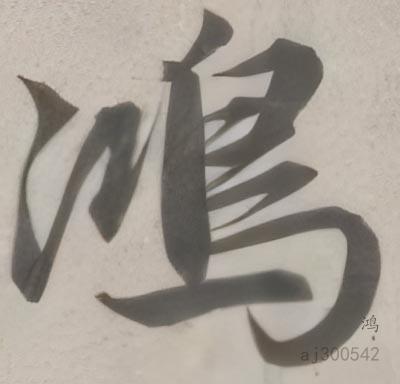 鴻
鸿
aj300542